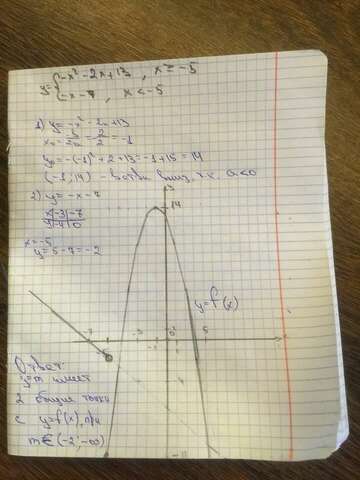 y={-x²-2x+13, x≥-5
{-x-7, x<-5
1) y=-x²-2x+13
x₀=-b/2a=-2/2=-1
y₀=-(-1)²+2+13=-1+15=14
(-1;14) - ветви вниз, т.к. a<0
2) y=-x-7
x|-3|-7
y|-4|0
x=-5
y=5-7=-2
14
y=f(x)
-7
-3
-1
0
1
5
-11
Ответ:
y=m имеет
2 общие точки
с y=f(x), при
m∈(-2;-∞)